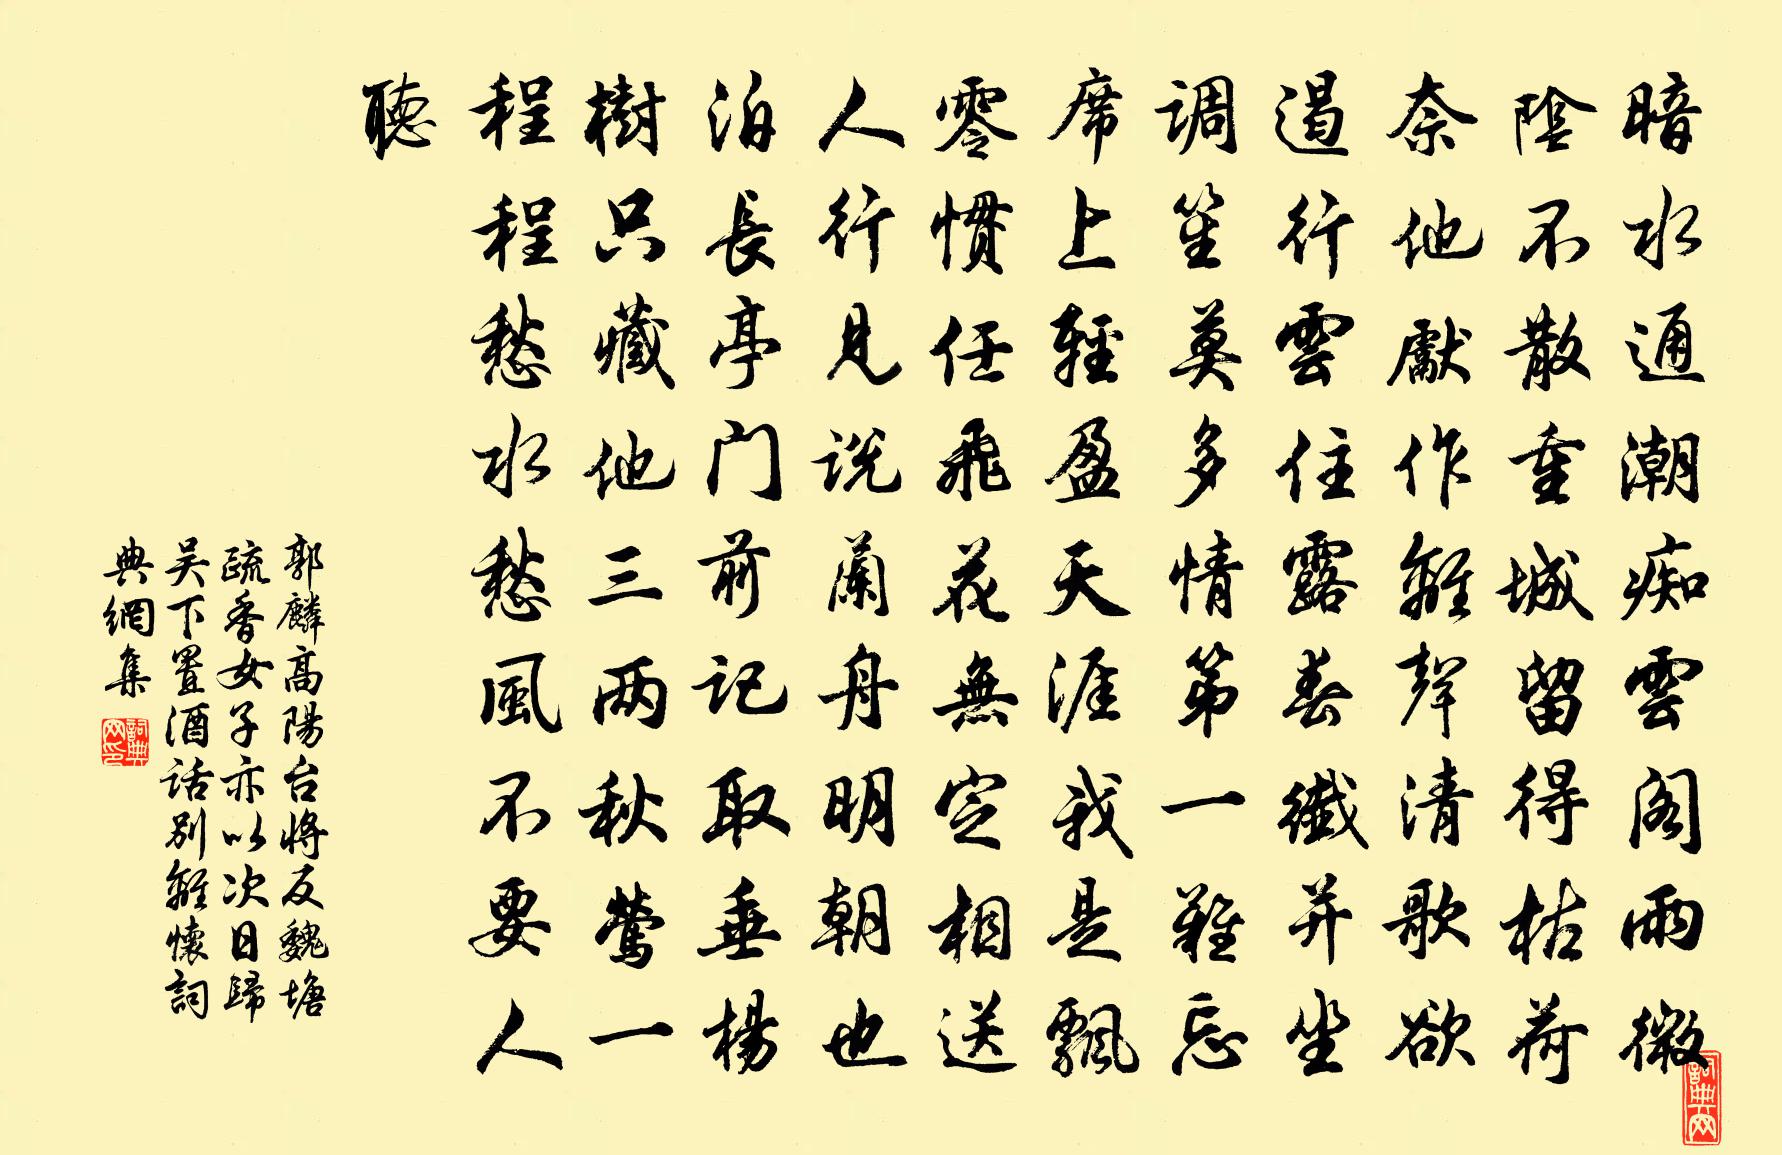 暗水通潮痴雲阁雨微
陰不散重城留得枯荷
奈他獻作離聲清歌欲
遏行雲住露春纖并坐
调笙莫多情第一難忘
席上輕盈天涯我是飄
零慣任飛花無定相送
人行見说蘭舟明朝也
泊長亭门前记取垂楊
樹只藏他三两秋鶯一
程程愁水愁風不要人
聽
郭麟高陽台將反魏塘
疏香女子亦以次日歸
吴下置酒话别離懷詞
典網集
詞典网